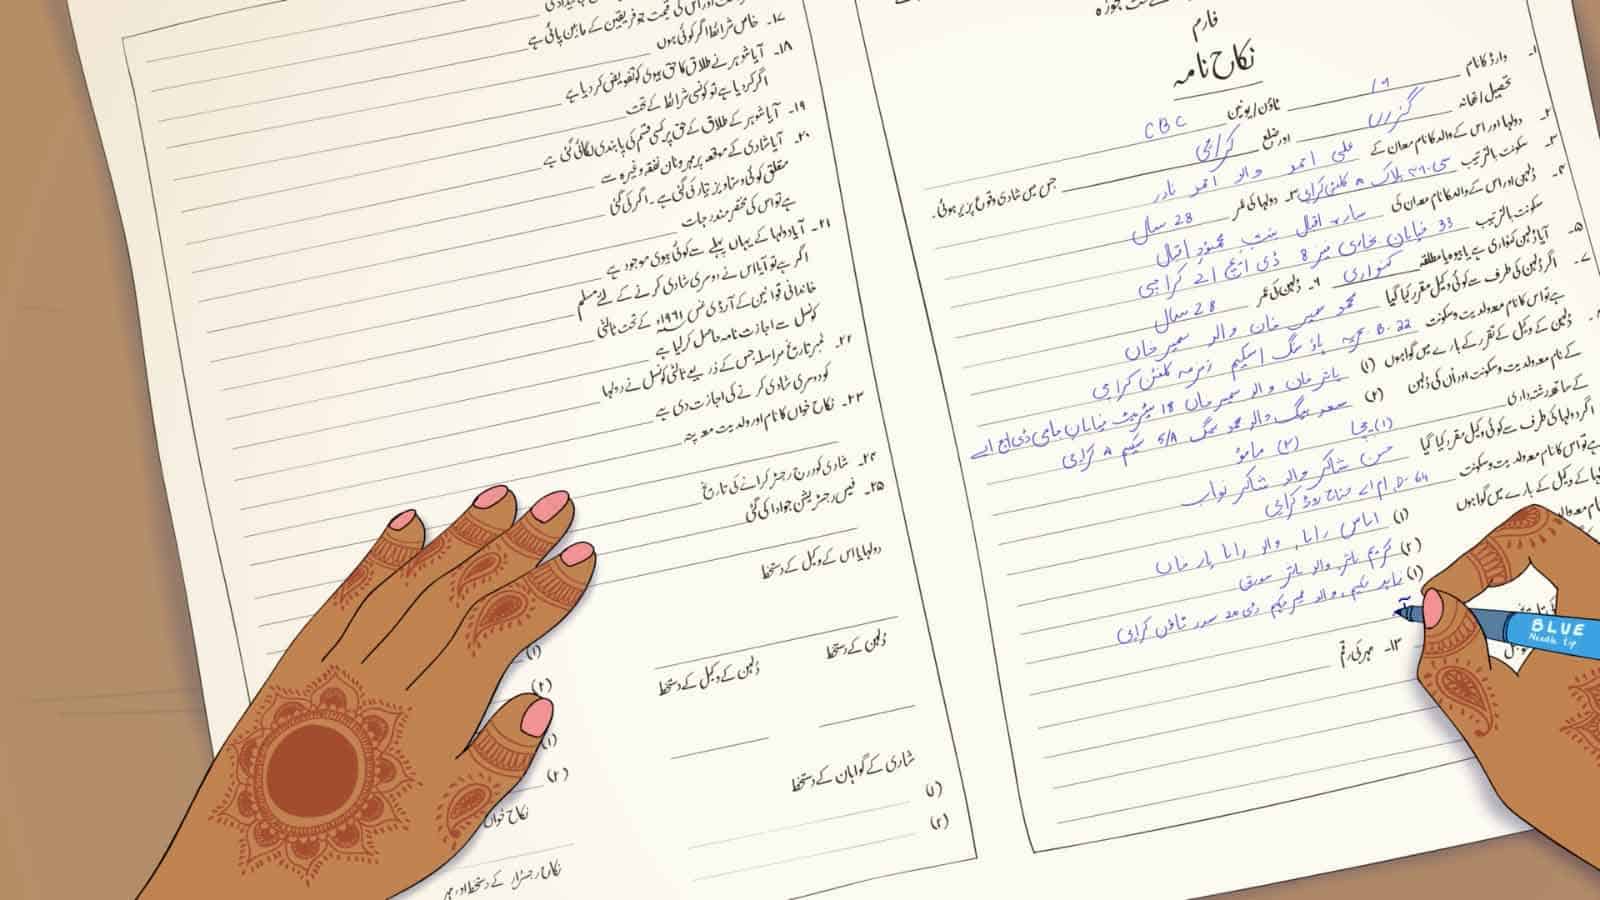 فارم
نکاح نامہ
۱۔ وارڈ کا نام ۱۹ ٹاؤن/یونین CBC
تحصیل/تھانہ گزری اور ضلع کراچی جس میں شادی وقوع پذیر ہوئی۔
۲۔ دولہا اور اس کے والد کا نام معہ ان کے علی احمد والد احمد نادر
۳۔ سکونت بالترتیب سی۔۳۶ بلاک ۸ کلفٹن کراچی ۳۔ دولہا کی عمر 28 سال
۴۔ دُلہن اور اس کے والد کا نام معہ ان کی سارہ اقبال بنت محمود اقبال
سکونت بالترتیب 33 خیابان بخاری فیز 8 ڈی ایچ اے کراچی
۵۔ آیا دُلہن کنواری ہے یا بیوہ یا مطلقہ کنواری ۶۔ دُلہن کی عمر 28 سال
۷۔ اگر دُلہن کی طرف سے کوئی وکیل مقرر کیا گیا محمد سمیر خان والد سمیر خان
ہے تو اس کا نام معہ ولدیت و سکونت 22 .B ہاؤسنگ اسکیم زمزمہ کلفٹن کراچی
دُلہن کے وکیل کے تقرر کے بارے میں گواہوں (۱) خان والد سمیر خان 18 سٹریٹ خیابان جامی ڈی ایچ اے
کے نام معہ ولدیت و سکونت اور اُن کی دُلہن (۲) سعد بیگ والد محمد بیگ 5/A سکیم A کراچی
کے ساتھ رشتہ داری (۱) چچا (۲) ماموں
اگر دولہا کی طرف سے کوئی وکیل مقرر کیا گیا حسن شاکر والد شاکر نواب
ہے تو اس کا نام معہ ولدیت و سکونت D-64، ایم اے جناح روڈ کراچی
کے وکیل کے بارے میں گواہوں (۱) الماس رانا، والد رانا یار خان
(۲) کریم باقر والد باقر
(۱) زاہد سلیم، والد سلیم ڈی 20 صدر ٹاؤن کراچی
۱۳۔ مہر کی رقم
BLUE
Needle tip
اور اس کی قیمت جو فریقین کے مابین پائی ہے
۱۷۔ خاص شرائط اگر کوئی ہوں
۱۸۔ آیا شوہر نے طلاق کا حق بیوی کو تفویض کر دیا ہے
اگر کر دیا ہے تو کونسی شرائط کے تحت
۱۹۔ آیا شوہر کے طلاق کے حق پر کسی قسم کی پابندی لگائی گئی ہے
۲۰۔ آیا شادی کے موقعہ پر مہر و نان نفقہ وغیرہ سے
متعلق کوئی دستاویز تیار کی گئی ہے۔ اگر کی گئی
ہے تو اس کی مختصر مندرجات
۲۱۔ آیا دولہا کے یہاں پہلے سے کوئی بیوی موجود ہے
اگر ہے تو آیا اس نے دوسری شادی کرنے کے لئے مسلم
خاندانی قوانین کے آرڈی نس ۱۹۶۱ء کے تحت ثالثی
کونسل سے اجازت نامہ حاصل کر لیا ہے
۲۲۔ نمبر تاریخ مراسلہ جس کے ذریعے ثالثی کونسل نے دولہا
کو دوسری شادی کرنے کی اجازت دی ہے
۲۳۔ نکاح خواں کا نام اور ولدیت معہ پتہ
۲۴۔ شادی کو درج رجسٹر کرانے کی تاریخ
۲۵۔ فیس رجسٹریشن جو ادا کی گئی
دولہا یا اس کے وکیل کے دستخط
دُلہن کے دستخط
دُلہن کے وکیل کے دستخط
شادی کے گواہان کے دستخط
(۱)
(۲)
(۱)
(۲)
(۱)
(۲)
نکاح خواں
نکاح رجسٹرار کے دستخط اور مہر